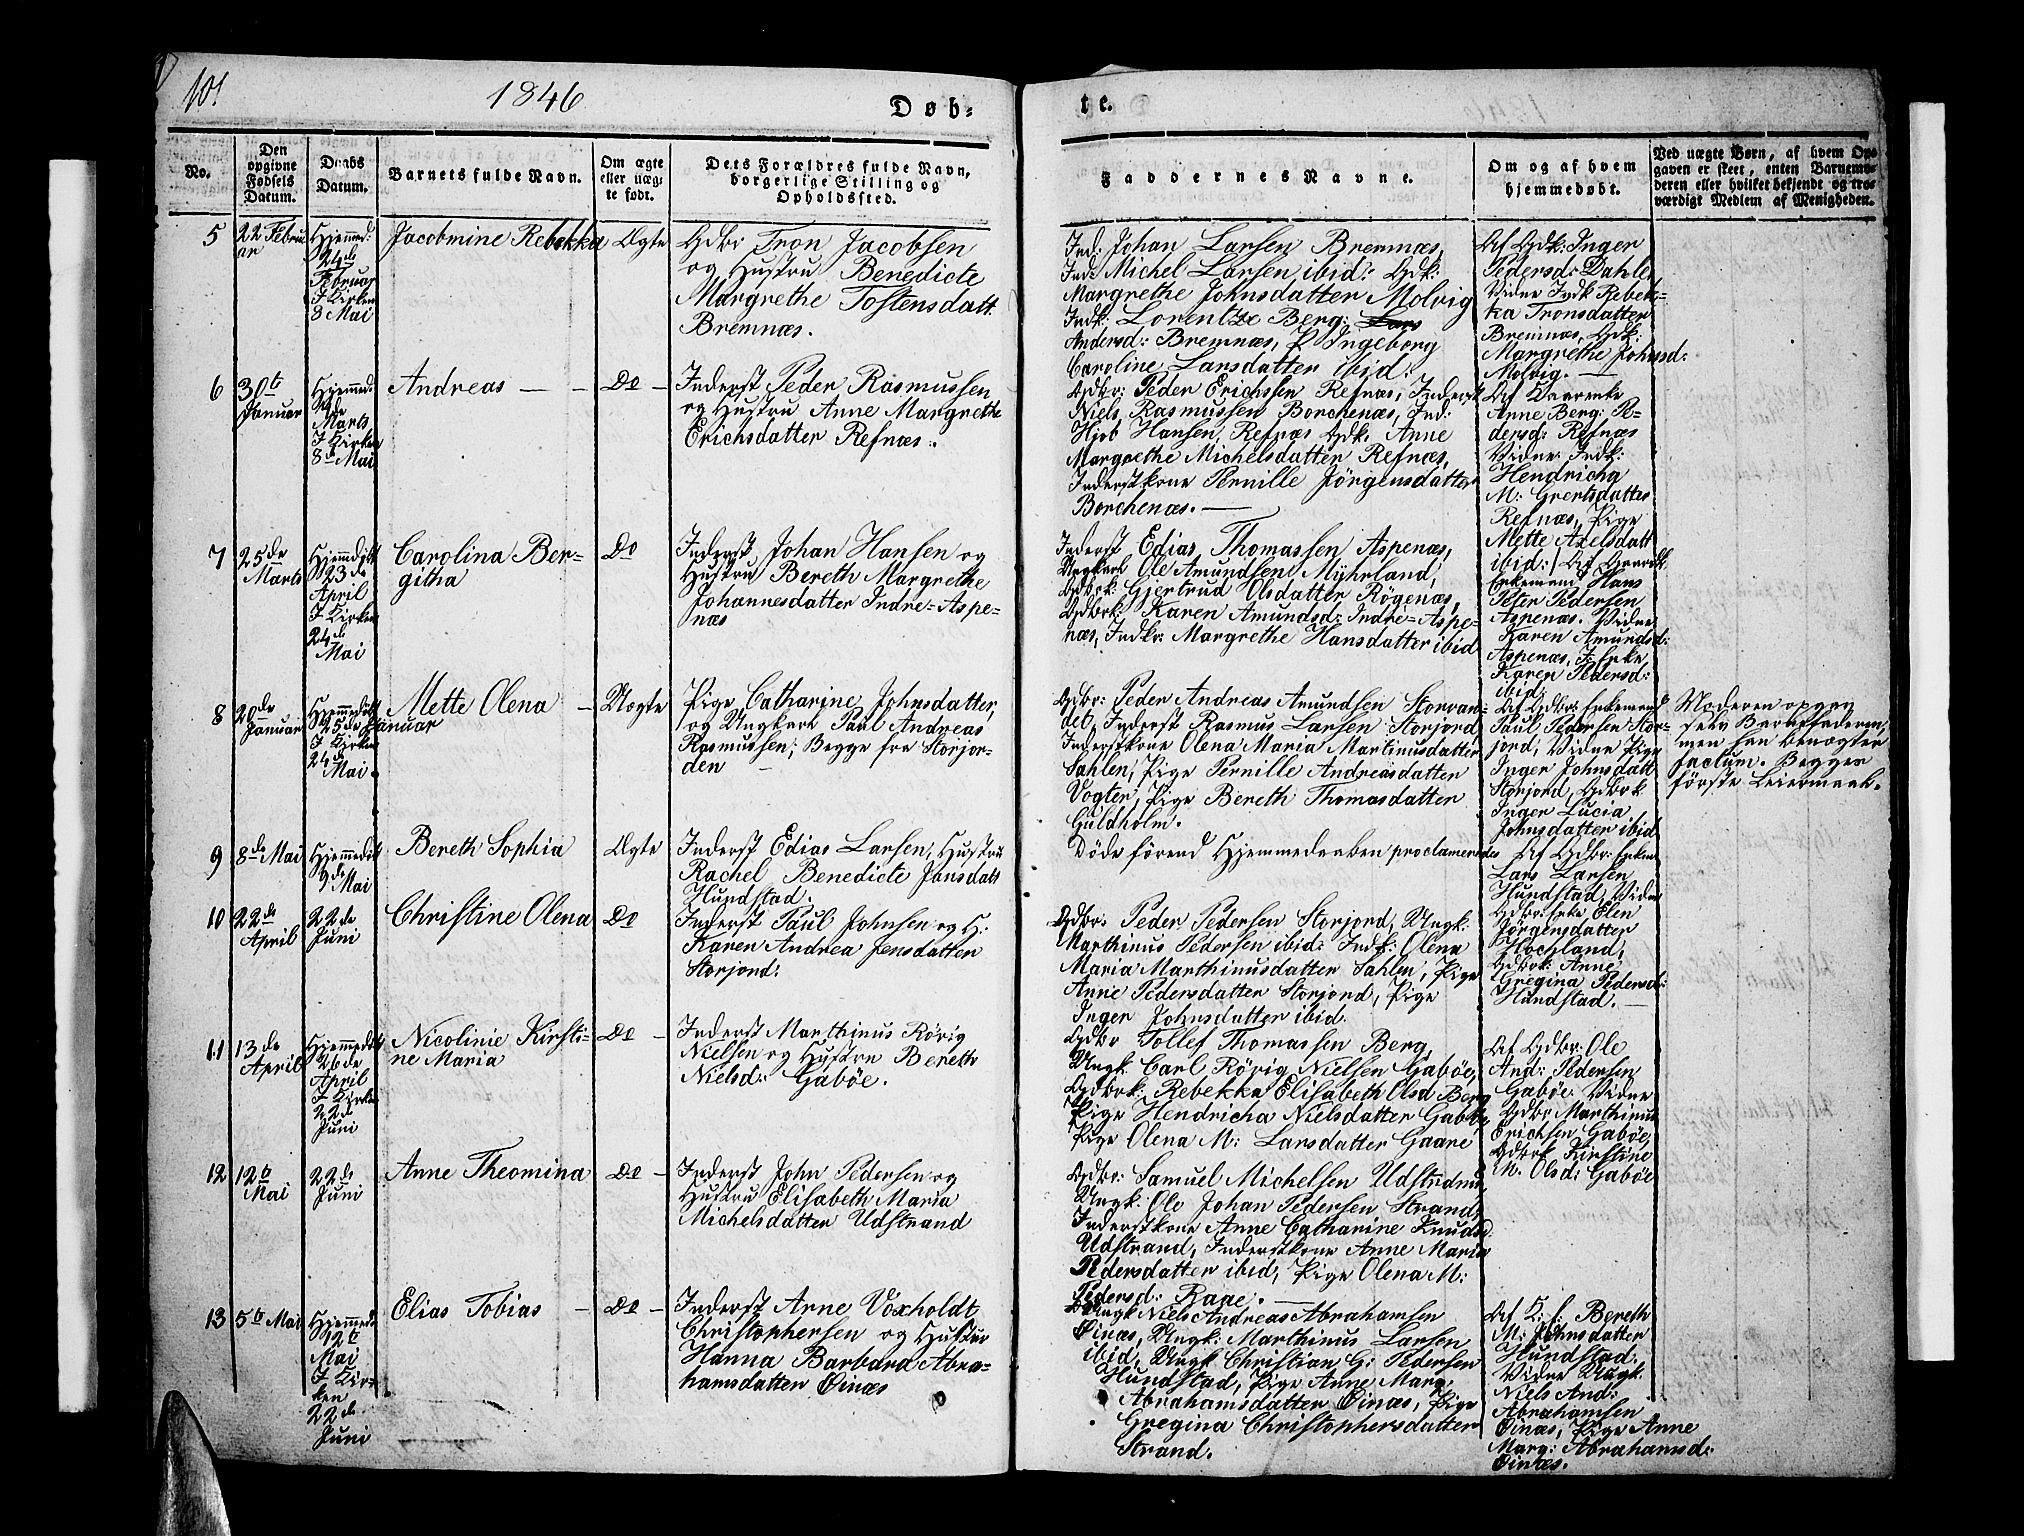 101
1846
Døb-
te.
No.
Den
opgivne
Fødsels
Datum.
Daabs
Datum.
Barnets fulde Navn.
Om ægte
eller uæg-
te født.
Dets Forældres fulde Navn,
borgerlige Stilling og
Opholdssted.
Faddernes Navne.
Om og af hvem
hjemmedøbt.
Ved uægte Børn, af hvem Op-
gaven er skeet, enten Barnemo-
deren eller hvilket bekjendt og tro-
værdigt Medlem af Menigheden.
5
22 Febru
ar
Hjemmed:
24de
Februar
I Kirken
8 Mai
Jacobmine Rebekka
Ægte
Gdbr: Tron Jacobsen
og Hustru Benedicte
Margrethe Tostensdatt
Bremnæs.
Ind: Johan Larsen Bremnæs,
Ind: Michel Larsen ibid: Gdk:
Margrethe Johnsdatter Molvig
Indk: Lorentze Berg:
Andersd: Bremnæs, P Ingeborg
Caroline Larsdatter ibid:
Af Gdk: Inger
Pedersd: Dahle
Vidne Indk Rebek-
ka Tronsdatter
Bremnæs, Gdk:
Margrethe Johnsd:
Molvig. —
6
30te
Januar
Hjemmed:
Marts
I Kirken
8de Mai
Andreas — —
Do —
Inderst Peder Rasmussen
og Hustru Anne Margrethe
Erichsdatter Refnæs.
Gdbr: Peder Erichsen Refnæs, Inderst
Niels Rasmussen Borchenæs, Ind:
Hjob Hansen, Refnæs Gdk. Anne
Margrethe Michelsdatter Refnæs,
Inderstkone Pernille Jörgensdatter
Borchenæs. —
Af
Anne Berg: Pe-
dersd: Refnæs
Vidne Indk:
Hendricha
M: Gertsdatter
Refnæs, Pige
Mette Axelsdatt
ibid:
7
25de
Marts
Hjemmedøbt
23de
April
I Kirken
24de
Mai
Carolina Ber-
githa
Do
Inderst Johan Hansen og
Hustru Bereth Margrethe
Johannesdatter Indre=Aspe-
næs
Inderst Edias Thomassen Aspenæs,
Ungkarl Ole Amundsen Myhrland,
Gdbrk: Gjertrud Olsdatter Rögenæs,
Gdbrk: Karen Amundsd: Indre=Aspe-
næs, Indk: Margrethe Hansdatter ibid
Af
Enkemand Hans
Peter Pedersen
Aspenæs. Vidne
Karen Amundsd:
Aspenæs, I Enke
Karen Pedersd:
ibid
8
20de
Januar
Hjemmedøbt
25de Januar
I Kirken
24de
Mai.
Mette Olena —
Uægte
Pige Catharine Johnsdatter,
og Ungkarl Paul Andreas
Rasmussen, Begge fra Storjor-
den —
Gdbr: Peder Andreas Amundsen Storvan-
det, Inderst Rasmus Larsen Storjord
Inderstkone Olena Maria Martinusdatter
Sahlen, Pige Pernille Andreasdatter
Vogter, Pige Bereth Thomasdatter
Guldholm.
Af Gdbr: Enkemand
Paul Pedersen Stor-
jord, Vidne Pige
Inger Johnsdatt
Storjord, Gdbrk
Inger Lucia
Johnsdatter ibid
Moderen opgav
selv Barnefaderen,
men han benægter
factum. Begges
förste Leiermaal.
9
8de Mai
Hjemmedøbt
9de
Mai
Bereth Sophia
Ægte
Inderst Edias Larsen, Hustru
Rachel Benedicte Jonsdatt
Hundstad.
Döde förend Hjemmedaaben proclameredes
Af Gdbr: Enkem
Lars Larsen
Hundstad, Vidne
Gdbr: Enke Elen
Jörgensdatter
Hochland,
Gdbrk: Anne
Gregina Pedersd:
Hundstad. —
10
22de
April
22de
Juni
Christine Olena
Do
Inderst Paul Johnsen og H:
Karen Andrea Jensdatter
Storjord.
Gdbr: Peder Pedersen Storjord, Ungk:
Marthinus Pedersen ibid: Indk: Olena
Maria Marthinusdatter Sahlen, Pige
Anne Pedersdatter Storjord, Pige
Inger Johnsdatter ibid.
11
13de
April
Hjemmedøbt
26de
April
I Kirken
22de
Juni
Nicolinie Kirsti-
ne Maria
Do —
Inderst Marthinus Rörig
Nielsen og Hustru Bereth
Nielsd: Gabøe.
Gdbr Tollef Thomassen Berg,
Ungk: Carl Rörig Nielsen Gabøe,
Gdbrk: Rebekka Elisabeth Olsd Berg
Pige Hendricha Nielsdatter Gabøe,
Pige Olena M: Larsdatter Gaare
Af Gdbr: Ole
And: Pedersen
Gabøe. Vidne
Gdbr: Marthinus
Erichsen Gabøe,
Gdbrk Kirstine
M: Olsd: Gabøe
12
12te
Mai
22de
Juni
Anne Theomina
Do —
Inderst John Pedersen og
Hustru Elisabeth Maria
Michelsdatter Udstrand
Gdbr: Samuel Michelsen Udstrand
Ungk: Ole Johan Pedersen Strand,
Inderstkone Anne Catharine Knudsd
Udstrand, Inderstkone Anne Maria
Pedersdatter ibid, Pige Olena M:
Pedersd: Rage. —
13
5te Mai
Hjemmed:
12te
Mai
I Kir-
ken
22de
Juni
Elias Tobias —
Do —
Inderst Arne Voxholdt
Christophersen og Hustru
Hanna Barbara Abra-
hamsdatter Öinæs
Ungk Niels Andreas Abrahamsen
Öinæs, Ungk: Marthinus Larsen
ibid, Ungk Christian G: Pedersen
Hundstad, Pige Anne Marg:
Abrahamsdatter Öinæs, Pige
Gregina Christophersdatter
Strand.
Af K. f. Bereth
M: Johnsdatter
Hundstad.
Vidne Ungk.
Niels And:
Abrahamsen
Öinæs, Pige Anne
Marg: Abrahamsd:
Öinæs.